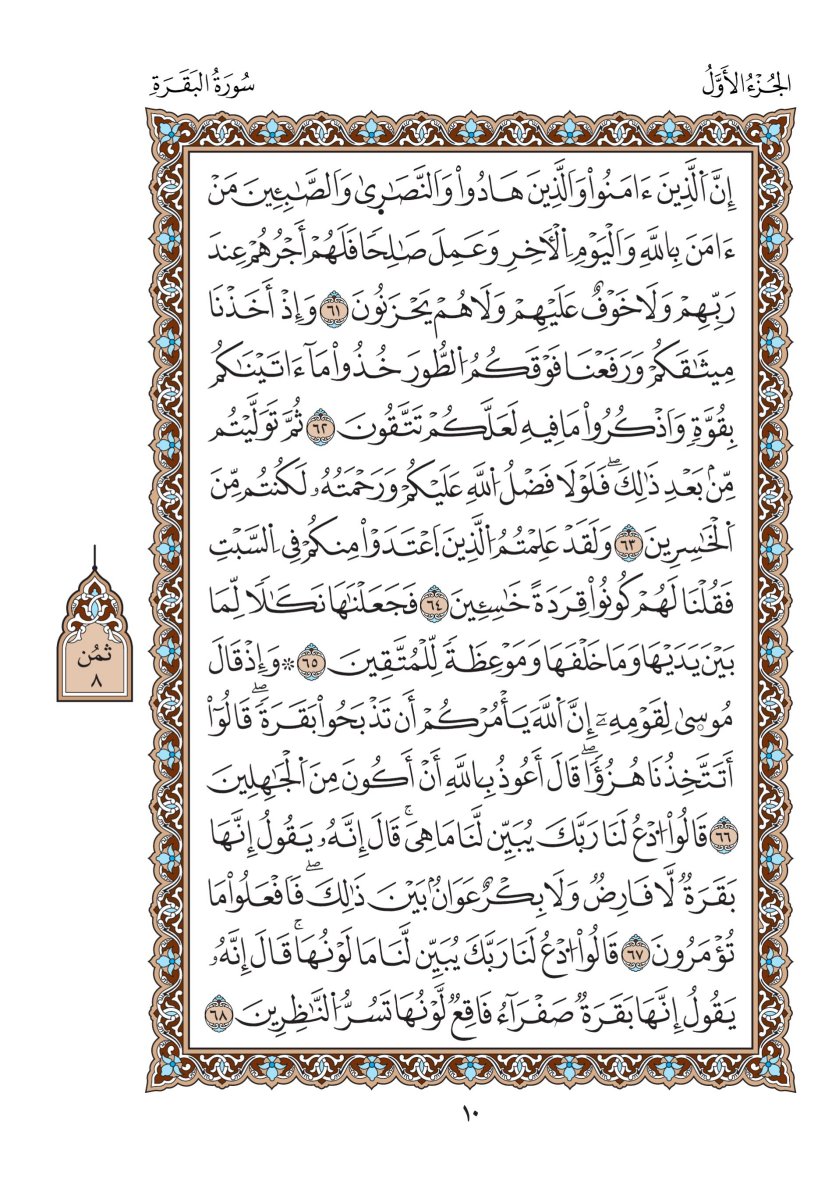 الجُزْءُ الأَوَّلُ
سُورَةُ البَقَرَةِ
إِنَّ اَ۬لذِينَ ءَامَنُواْ وَالذِينَ هَادُواْ وَالنَّصَٰر۪ىٰ وَالصَّٰبِـِٕينَ مَنْ
ءَامَنَ بِاللَّهِ وَالْيَوْمِ اِ۬لْأٓخِرِ وَعَمِلَ صَٰلِحاٗ فَلَهُمْ أَجْرُهُمْ عِندَ
رَبِّهِمْ وَلَا خَوْفٌ عَلَيْهِمْ وَلَا هُمْ يَحْزَنُونَ ٦١ وَإِذْ أَخَذْنَا
مِيثَٰقَكُمْ وَرَفَعْنَا فَوْقَكُمُ اُ۬لطُّورَ خُذُواْ مَآ ءَاتَيْنَٰكُم
بِقُوَّةٖ وَاذْكُرُواْ مَا فِيهِ لَعَلَّكُمْ تَتَّقُونَ ٦٢ ثُمَّ تَوَلَّيْتُم
مِّنۢ بَعْدِ ذَٰلِكَۖ فَلَوْلَا فَضْلُ اُ۬للَّهِ عَلَيْكُمْ وَرَحْمَتُهُۥ لَكُنتُم مِّنَ
اَ۬لْخَٰسِرِينَ ٦٣ وَلَقَدْ عَلِمْتُمُ اُ۬لذِينَ اَ۪عْتَدَوْاْ مِنكُمْ فِي اِ۬لسَّبْتِ
فَقُلْنَا لَهُمْ كُونُواْ قِرَدَةً خَٰسِـِٕينَ ٦٤ فَجَعَلْنَٰهَا نَكَٰلاٗ لِّمَا
بَيْنَ يَدَيْهَا وَمَا خَلْفَهَا وَمَوْعِظَةٗ لِّلْمُتَّقِينَ ٦٥ ۞ وَإِذْ قَالَ
مُوس۪ىٰ لِقَوْمِهِۦٓ إِنَّ اَ۬للَّهَ يَأْمُرْكُمْ أَن تَذْبَحُواْ بَقَرَةٗۖ قَالُوٓاْ
أَتَتَّخِذُنَا هُزُؤاٗۖ قَالَ أَعُوذُ بِاللَّهِ أَنْ أَكُونَ مِنَ اَ۬لْجَٰهِلِينَ
٦٦ قَالُواْ اُ۟دْعُ لَنَا رَبَّكَ يُبَيِّن لَّنَا مَا هِيَۚ قَالَ إِنَّهُۥ يَقُولُ إِنَّهَا
بَقَرَةٞ لَّا فَارِضٞ وَلَا بِكْرٌ عَوَانُۢ بَيْنَ ذَٰلِكَۖ فَافْعَلُواْ مَا
تُؤْمَرُونَ ٦٧ قَالُواْ اُ۟دْعُ لَنَا رَبَّكَ يُبَيِّن لَّنَا مَا لَوْنُهَاۚ قَالَ إِنَّهُۥ
يَقُولُ إِنَّهَا بَقَرَةٞ صَفْرَآءُ فَاقِعٞ لَّوْنُهَا تَسُرُّ اُ۬لنَّٰظِرِينَ ٦٨
ثُمُن
٨
١٠